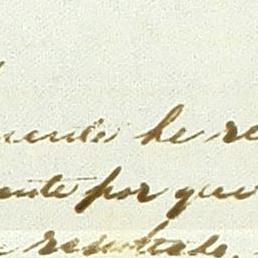 he re
ente por que
resultado,